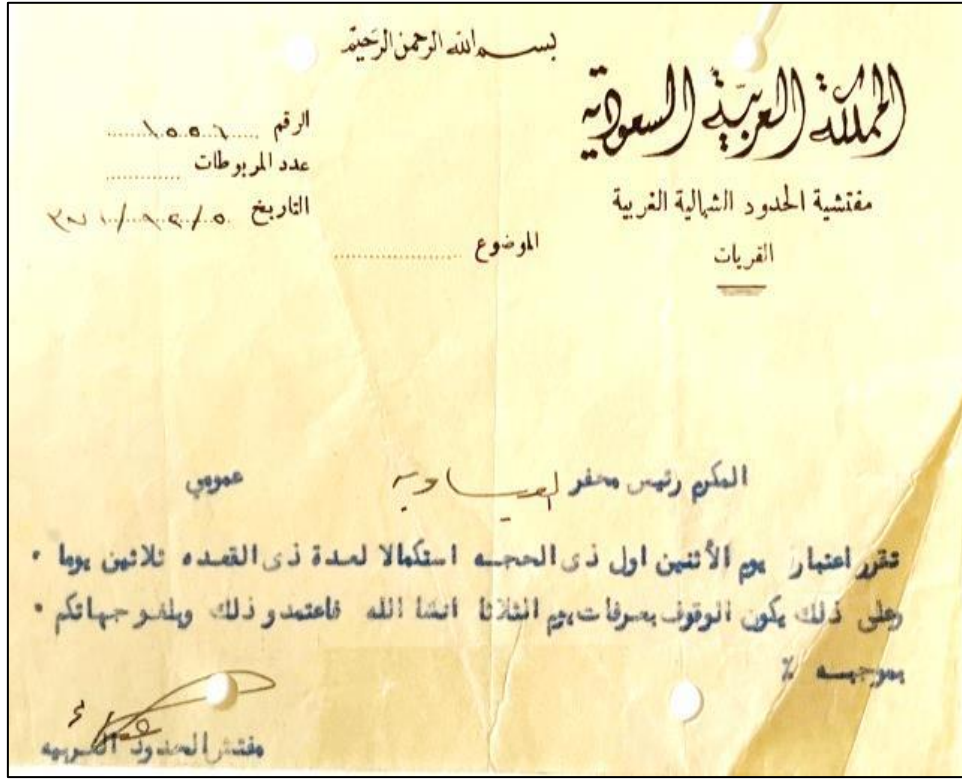 بسم الله الرحمن الرحيم
المملكة العربية السعودية
مفتشية الحدود الشمالية الغربية
القريات
الرقم ١٥٥٦
عدد المربوطات
التاريخ
الموضوع
المكرم رئيس مخفر العيساويه عمومي
تقرر اعتبار يوم الأثنين اول ذى الحجه استكمالا لعدة ذى القعده ثلاثين يوما ٠
وعلى ذلك يكون الوقوف بعرفات يوم الثلاثا انشا الله فاعتمدو ذلك وبلغو جهاتكم ٠
بموجبه ٪
مفتش الحدود